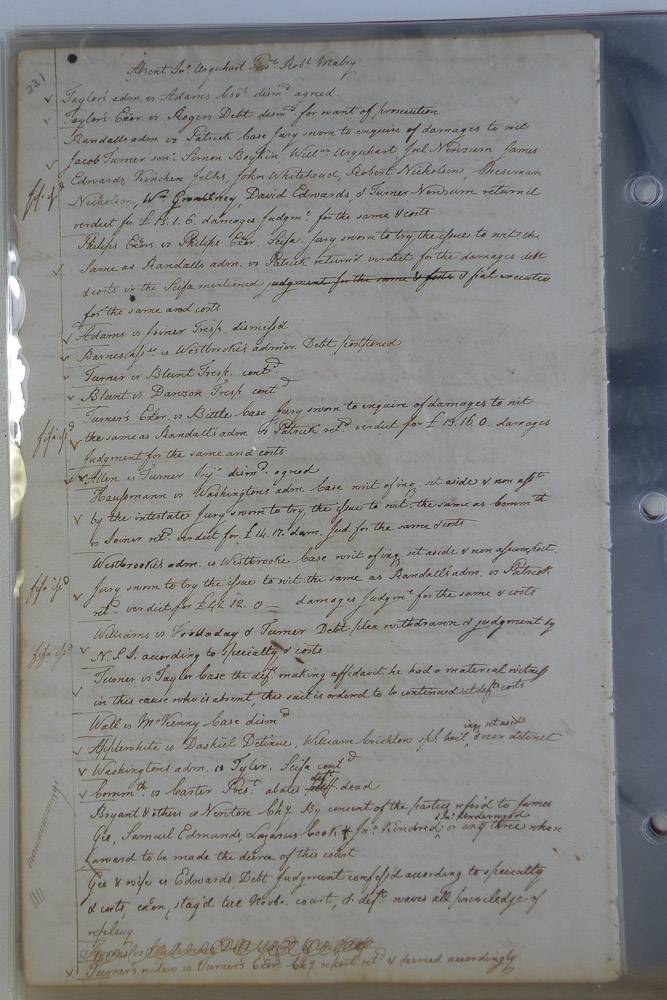 231
Absent Jno. Urquhart Prst. Robt. Mabry
Taylor's adm. vs Adams Covt. dismd. agreed.
Taylor's Exor. vs Rogers Debt dismd. for want of prosecution
Randall's adm. vs Patrick Case Jury sworn to enquire of damages to wit
Jacob Turner senr. Simon Boykin, Willm. Urquhart Jul Newsum James
Edwards, Kinchen Jelks, John Whitehead, Robert Nicholson, Chessman
Nicholson, Wm. David Edwards, & Turner Newsum return'd
verdict for £ 15. 1. 6. damages Judgmt. for the same & costs
Philips Exors. vs Philips Exor. Scifa. Jury sworn to try the issue to wit the
same as Randall's adm. vs Patrick return'd verdict for the damages debt
& costs in the Scifa mentioned judgment for the same & costs
for the same and costs
Adams vs Joiner Tresp. dismiss'd
vs Westbrook's admor. Debt postponed
Turner vs Blunt Tresp. contd.
Blunt vs Dawson Tresp contd
Turner's Exor. vs Bittle Case Jury sworn to enquire of damages to wit
the same as Randall's adm. vs Patrick retd. verdict for £ 13. 16. 0. damages
Judgment for the same and costs
Allen vs Turner dismd. agreed
Haussmann vs Washington's adm. Case writ of inq. set aside & non asst.
by the intestate Jury sworn to try, the issue to wit, the same as Commth.
vs Joiner retd. verdict for £ 14. 17. dam. Jud. for the same & costs
Westbrook's adm. vs Westbrooke Case writ of inq. set aside & non assumpsit.
Jury sworn to try the issue to wit the same as Randall's adm. vs Patrick
retd. verdict for £ 42. 12. 0 — damages Judgmt. for the same & costs
Williams vs Holladay & Turner Debt plea withdrawn & judgment by
N. S. I. according to specialty & costs
Turner vs Taylor Case the deft. making affidavit he had a material witness
in this cause who is absent, this suit is ordered to be continued at defts. costs
Wall vs McKenny Case dismd
inq. set aside
Applewhite vs Daskiel Detinue, William Crichlow spl. bail, & non detinet
Washington's adm. vs Tyler. Scifa contd
Commth. vs Carter Prest. abates deft. dead
Bryant & others vs Newton Chy By consent of the parties refer'd to James
Gee, Samuel Edmunds, Lazarus Cook & Jno. Kindred or any three whose
award to be made the decree of this court
Gee & wife vs Edwards, Debt Judgment confess'd according to specialty
& costs, exon. stay'd till Novbr. court, & deft. waves all priviledge of
replevy
Turner's widow vs Turner's Exor. Chy report retd. & decreed accordingly